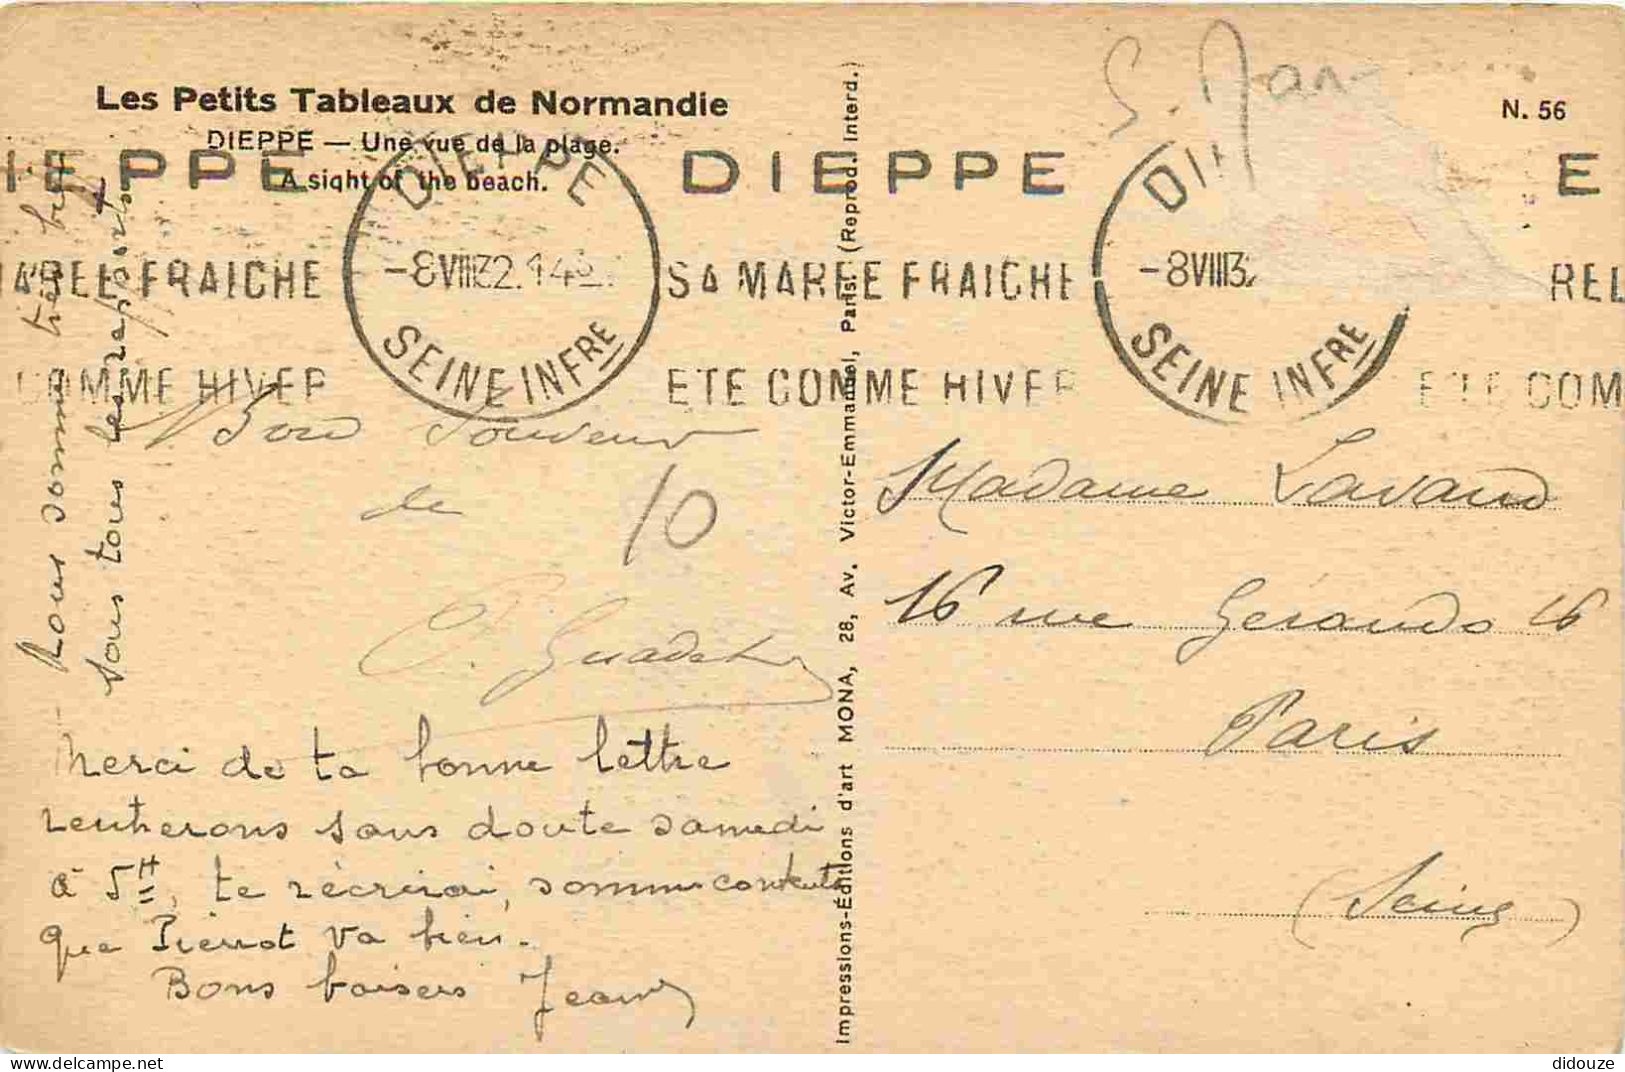 Les Petits Tableaux de Normandie
DIEPPE — Une vue de la plage.
A sight of the beach.
N. 56
IEPPE
MAREE FRAICHE
COMME HIVER
DIEPPE
-8 VIII 32. 14
SEINE INFRE
DIEPPE
SA MAREE FRAICHE
ETE COMME HIVER
DI
-8 VIII 32
SEINE INFRE
E
REE
ETE COM
Nous sommes très bien
sous tous les rapports
Bon Souvenir
de
10
C. Guadet
Merci de ta bonne lettre
rentrerons sans doute samedi
à 5H, te récrirai, sommes contents
que Pierrot va bien.
Bons baisers Jeanne
Impressions-Éditions d'art MONA, 28, Av. Victor-Emmanuel, Paris. (Reprod. Interd.)
Madame Lavaud
16 rue Gérando 16
Paris
(Seine)
didouze